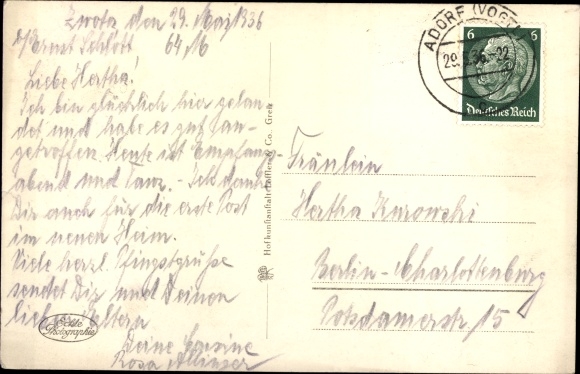 Zwota, den 29. Mai 1936
b/Ernst Schlott 64 M
Liebe Hertha!
Ich bin glücklich hier gelan-
det und habe es gut an-
getroffen. Heute ist Empfangs
abend und Tanz. - Ich danke
Dir auch für die erste Post
im neuen Heim.
Viele herzl. Pfingstgrüße
sendet Dir und Deinen
lieb. Eltern
Deine Cousine
Rosa
Echte
Photographie
Hofkunstanstalt Löffler & Co., Greiz
ADORF (VOGTL)
29.5.36.-22
6 6
Deutsches Reich
Fräulein
Hertha Kurowski
Berlin-Charlottenburg
Potsdamerstr. 15